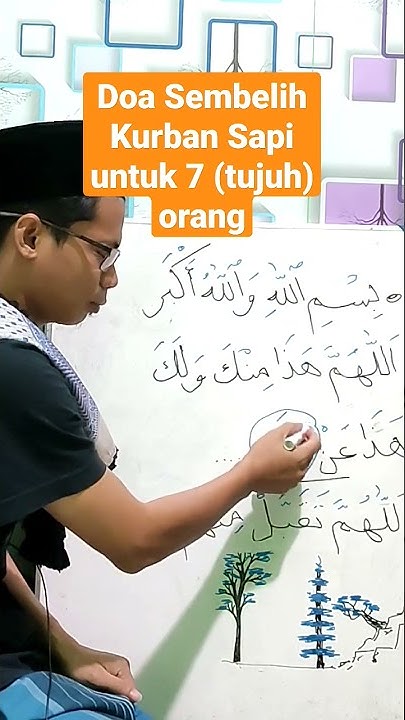 Doa Sembelih
Kurban Sapi
untuk 7 (tujuh)
orang
• بِسْمِ ٱللَّٰهِ وَٱللَّٰهُ أَكْبَر
اَللَّٰهُمَّ هَذَا مِنْكَ وَلَكَ
هَذَا عَنْ .....
اَللَّٰهُمَّ تَقَبَّلْ